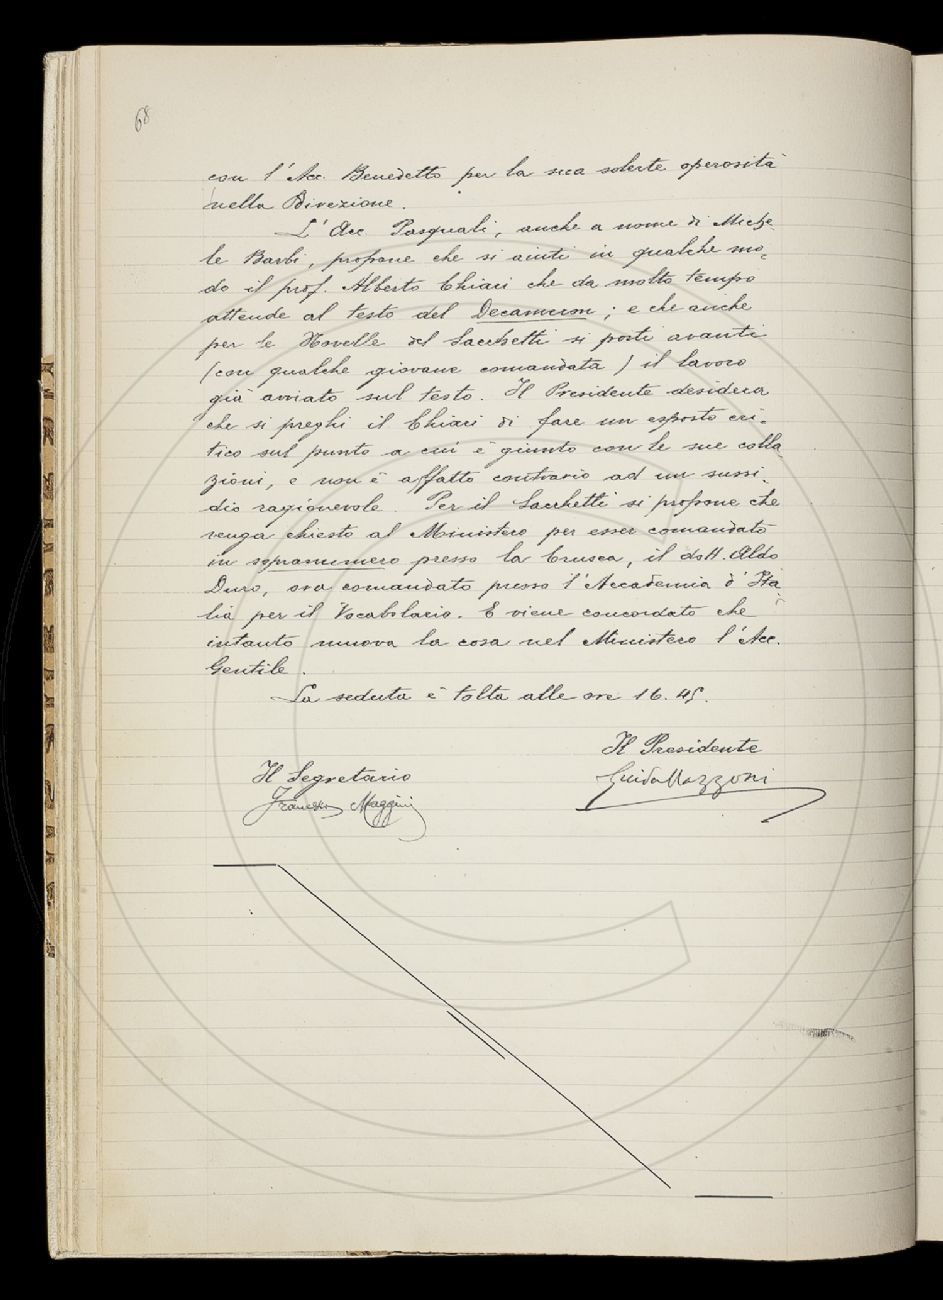 68
con l'Acc. Benedetto per la sua solerte operosità
nella Direzione.
L'Acc. Pasquali, anche a nome di Miche-
le Barbi, propone che si aiuti in qualche mo-
do il prof. Alberto Chiari che da molto tempo
attende al testo del Decameron; e che anche
per le Novelle del Sacchetti si porti avanti
(con qualche giovane comandato) il lavoro
già avviato sul testo. Il Presidente desidera
che si preghi il Chiari di fare un esposto cri-
tico sul punto a cui è giunto con le sue colla
zioni, e non è affatto contrario ad un sussi-
dio ragionevole. Per il Sacchetti si propone che
venga chiesto al Ministero per esser comandato
in soprannumero presso la Crusca, il dott. Aldo
Duro, ora comandato presso l'Accademia d'Ita
lia per il Vocabolario. E viene concordato che
intanto muova la cosa nel Ministero l'Acc.
Gentile.
La seduta è tolta alle ore 16.45.
Il Presidente
Guido Mazzoni
Il Segretario
Francesco Maggini